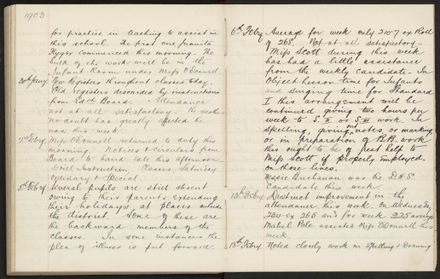 1903
for practice in teaching to assist in
this school. The first one Juanita
Rygge commenced this morning. The
bulk of the work will be in the
Infant Room under Miss O'Donnell
New Registers throughout classes today.
Old registers discarded by instructions
from Ed'n Board. Attendance
not at all satisfactory. The weather
no doubt has greatly affected the
nos. this week.
Miss O'Donnell returned to duty this
morning. Notices & Circulars from
Board to hand late this afternoon
with instruction Classes Saturday
Ordinary & Special.
5th Feby. Several pupils are still absent
owing to their parents extending
their holidays, at places outside
the district. Some of these are
the backward members of the
classes. In some instances the
plea of illness is put forward.
6th Feby. Average for week only 210.7 ex Roll
of 265. Not at all satisfactory.
Miss Scott during this week
has had a little assistance
from the weekly candidate. In
Object lesson time for Infants
and singing time for Standard
I this arrangement will be
continued giving two hours per
week to S. II or S. III work. In
spelling, giving notes or marking
or in preparation of B.B. work
this ought to be of great help to
Miss Scott if properly employed
on those lines.
Buchanan was the
Candidate this week
13th Feby. Distinct improvement in the
attendance this week. On Wednesday
ex 265 and for week 225 average
Mabel Pole assisted Miss O'Donnell this
week.
18th Feby. Noted closely work in Spelling & Drawing